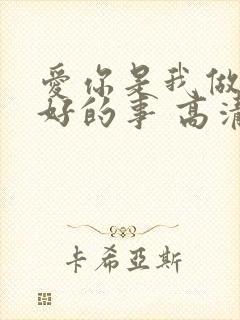 愛你是我做
好的事 高清
卡希亞斯